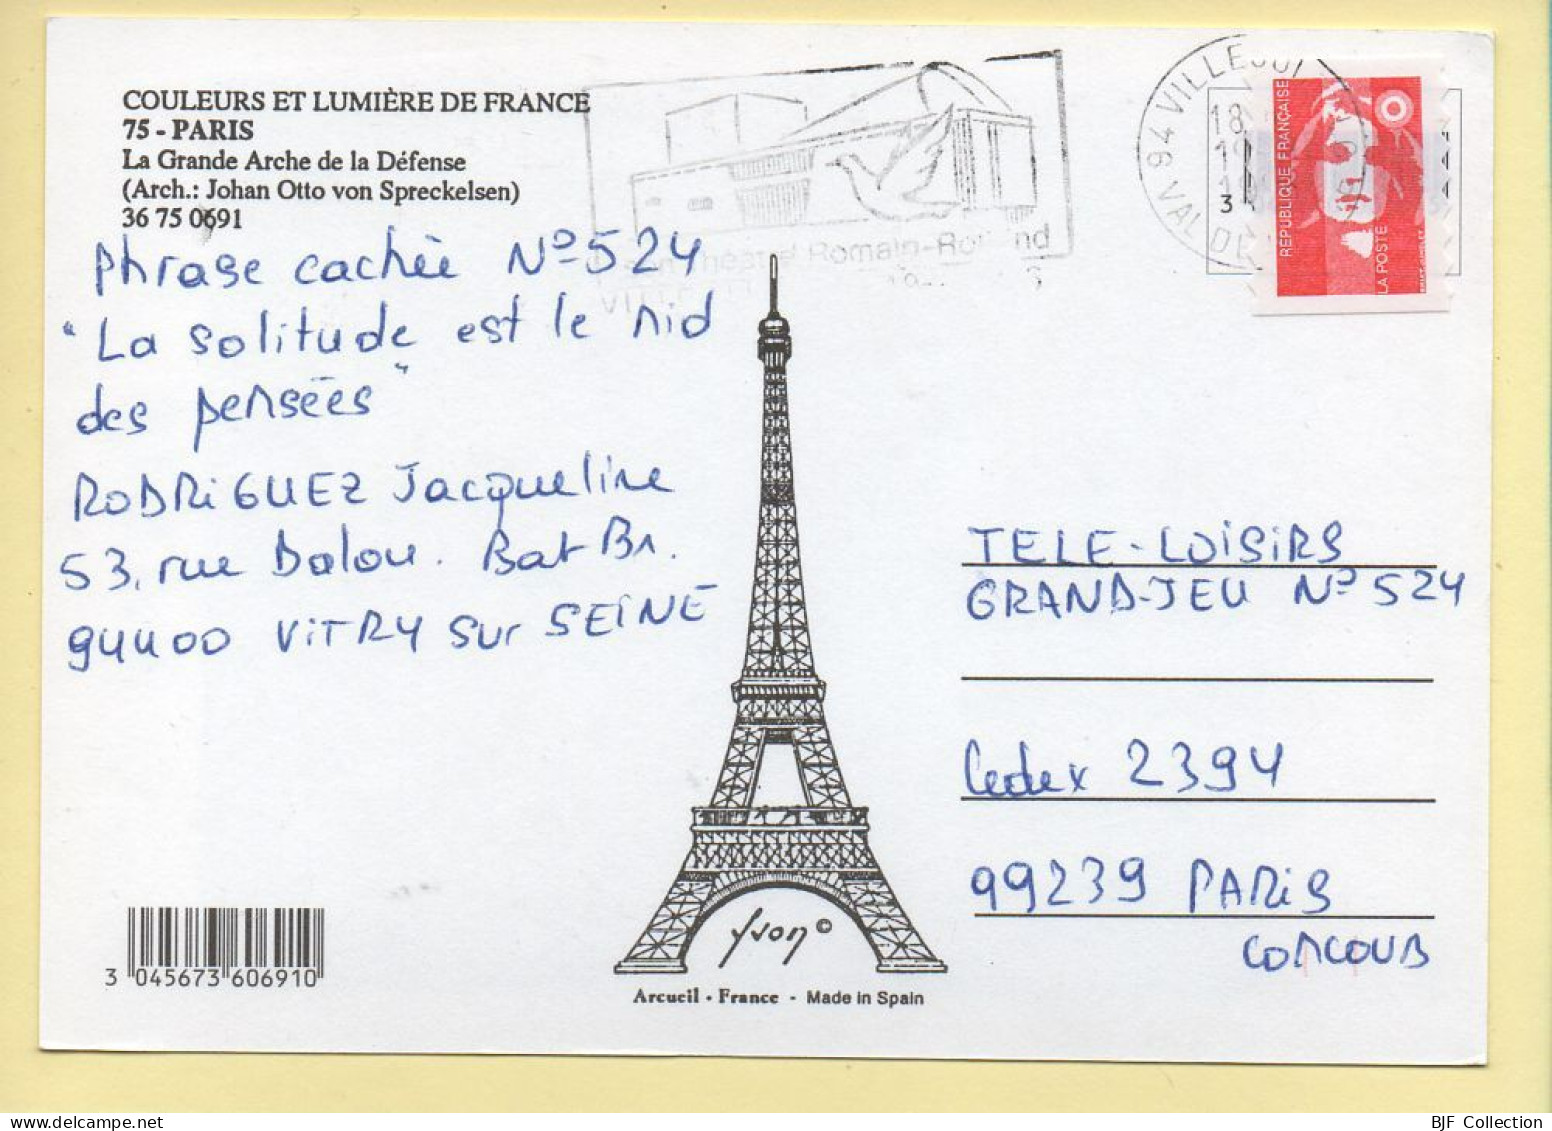 COULEURS ET LUMIÈRE DE FRANCE
75 - PARIS
La Grande Arche de la Défense
(Arch.: Johan Otto von Spreckelsen)
36 75 0691
Phrase cachée N° 524
"La solitude est le nid
des pensées"
RODRIGUEZ Jacqueline
53, rue Dalou. Bat B1.
94400 VITRY sur SEINE
Théatre Romain-Rolland
94 VILLEJUIF
18
VAL DE
3
RÉPUBLIQUE FRANÇAISE
LA POSTE
TELE-LOISIRS
GRAND-JEU N° 524
Cedex 2394
99239 PARIS
CONCOURS
Yvon ©
Arcueil - France - Made in Spain
3 045673 606910
BJF Collection